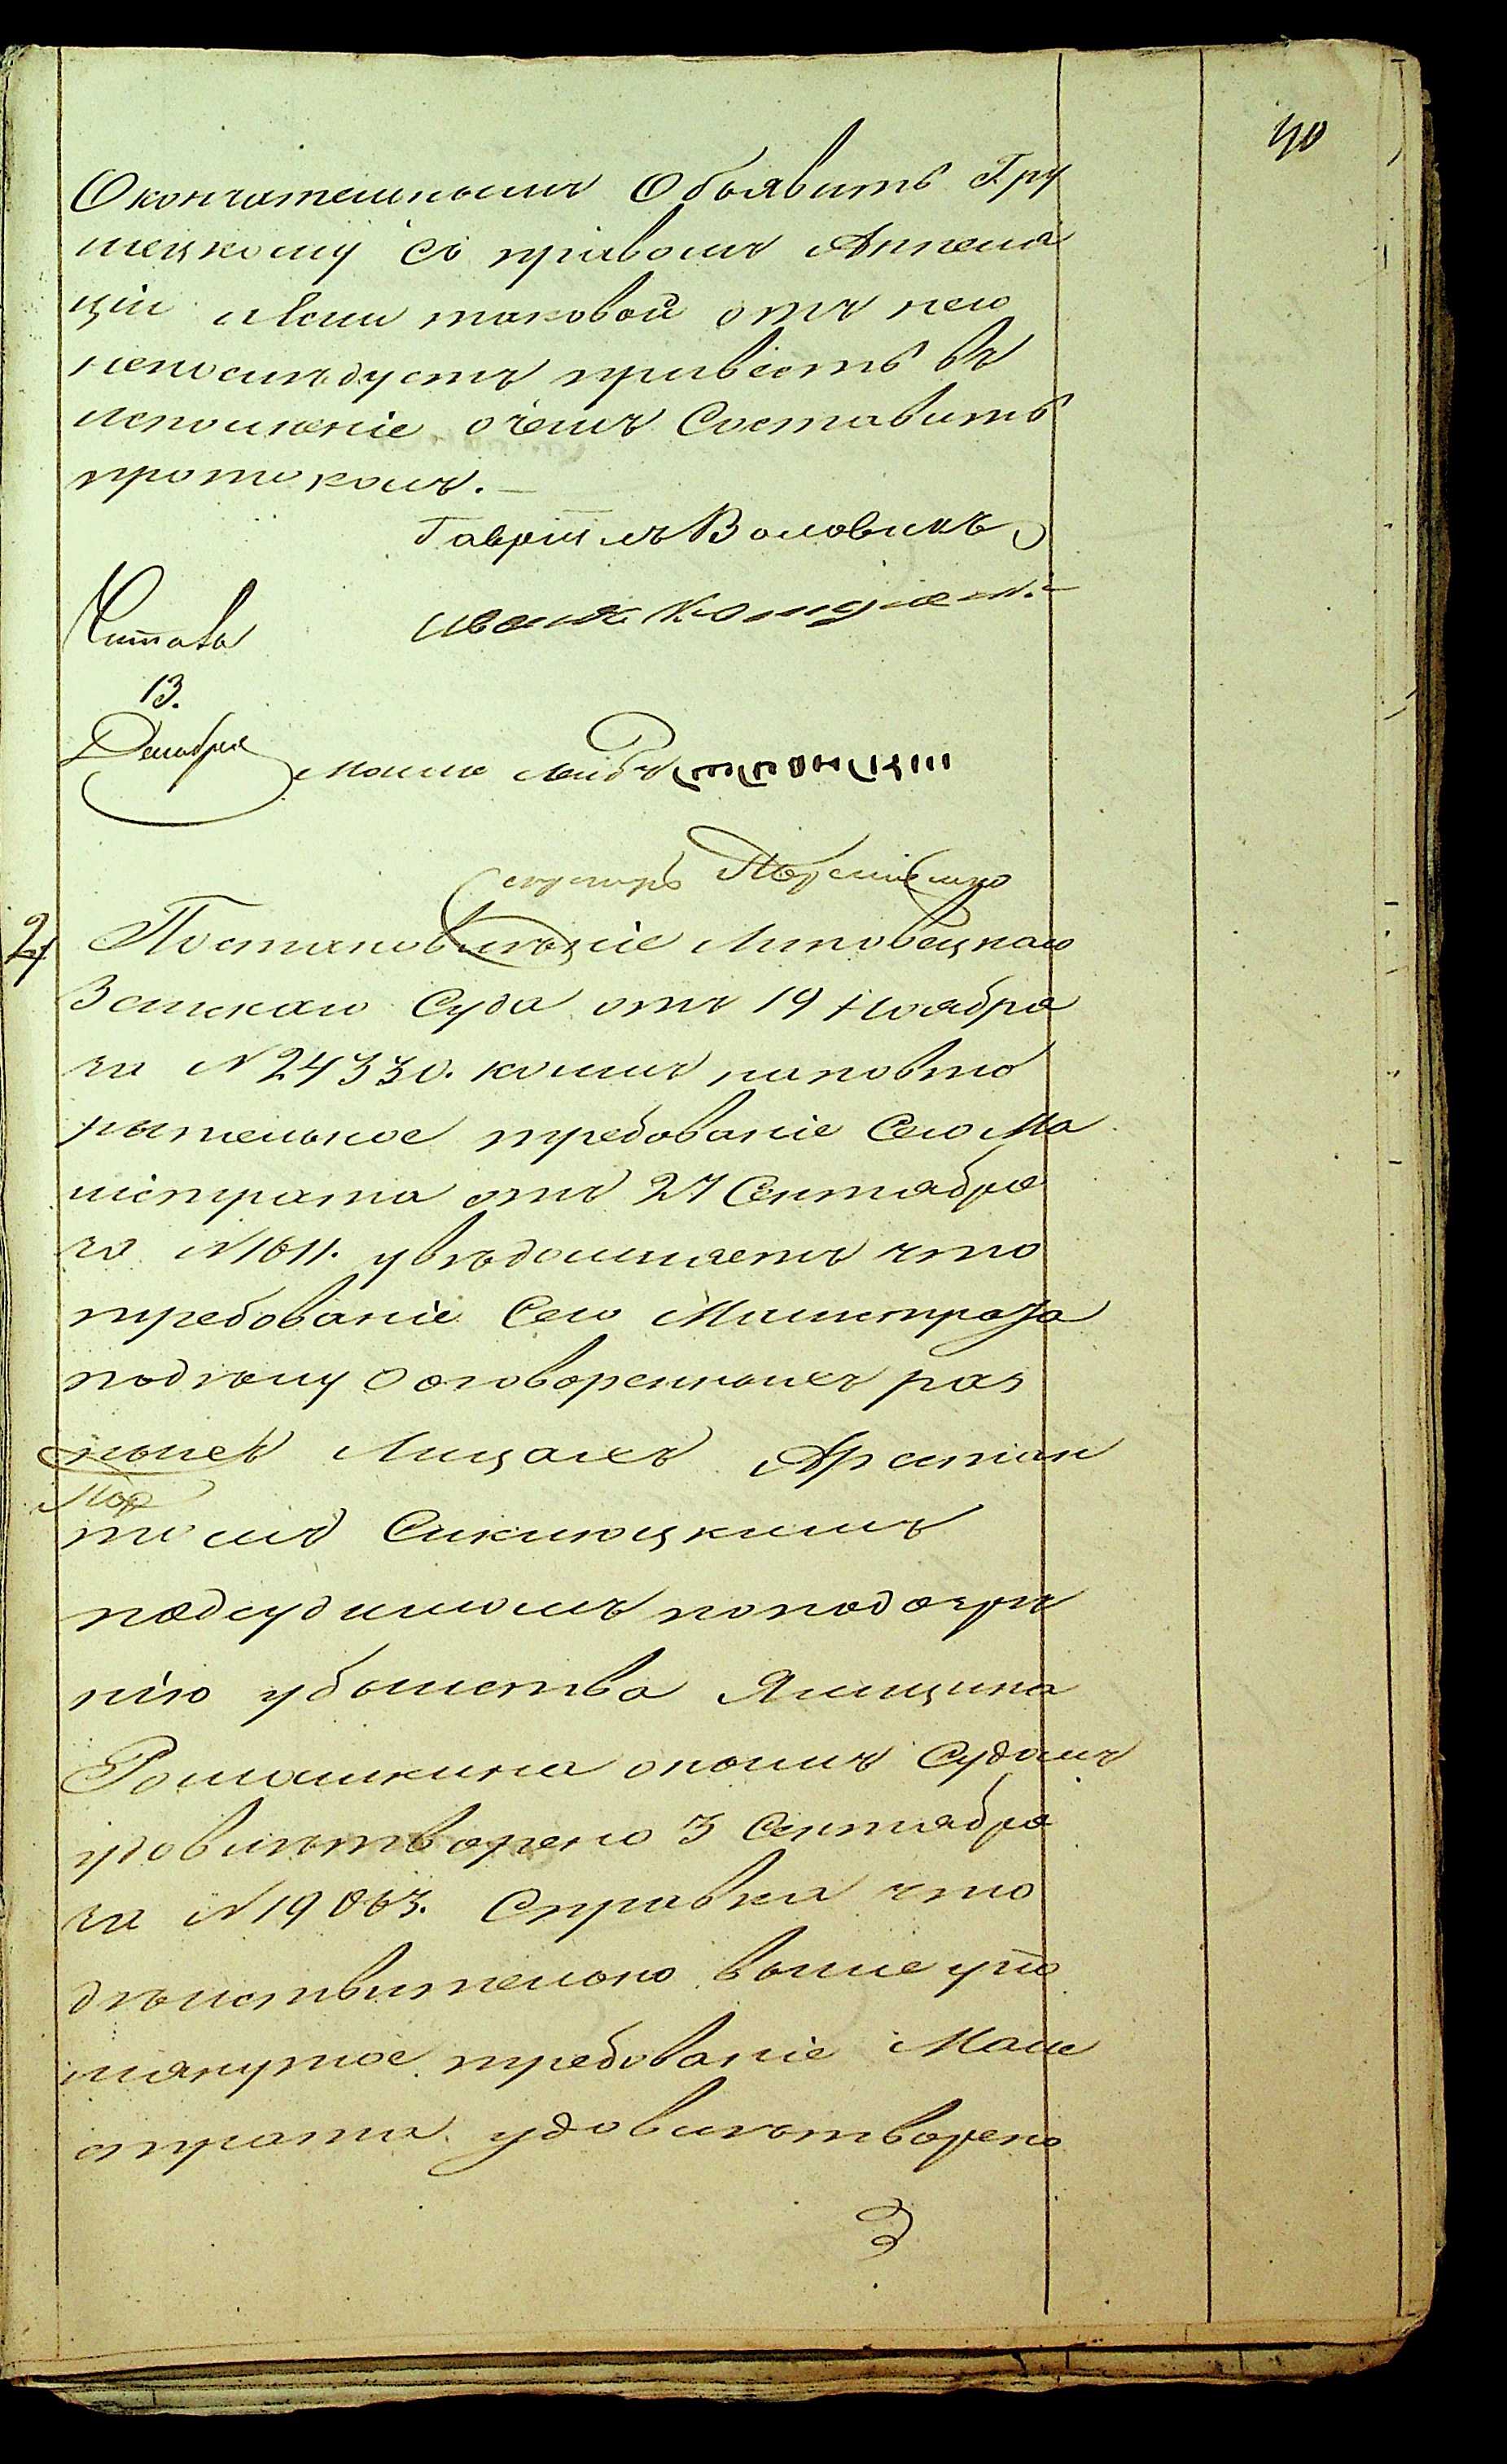 40
Окончательнымъ Объявить Гру
шецкому съ правомъ Аппеля
ціи и если таковой отъ него
непослѣдуетъ привесть въ
исполненіе о чемъ Составить
протоколъ.
Гавріилъ Воловикъ
Иванъ
Читалъ
13.
Декабря
Мошко Лейбъ
секретарь
2
Постановленіе Липовецкаго
Земскаго Суда отъ 19 Ноября
за N 24330. коимъ на повто
рительное требованіе Сего Ма
гистрата отъ 27 Сентября
за N 1611. увѣдомляетъ что
требованіе Сего Магистрата
по дѣлу О оговоренныхъ раз
ныхъ Лицахъ Арестан
томъ
подсудимомъ по подозрѣ
нію убійства Ямщика
Ромашкина онымъ Судомъ
удовлетворено 3 Сентября
за N 19863. Справка что
дѣйствительно выше упо
мянутое требованіе Маги
страта удовлетворено